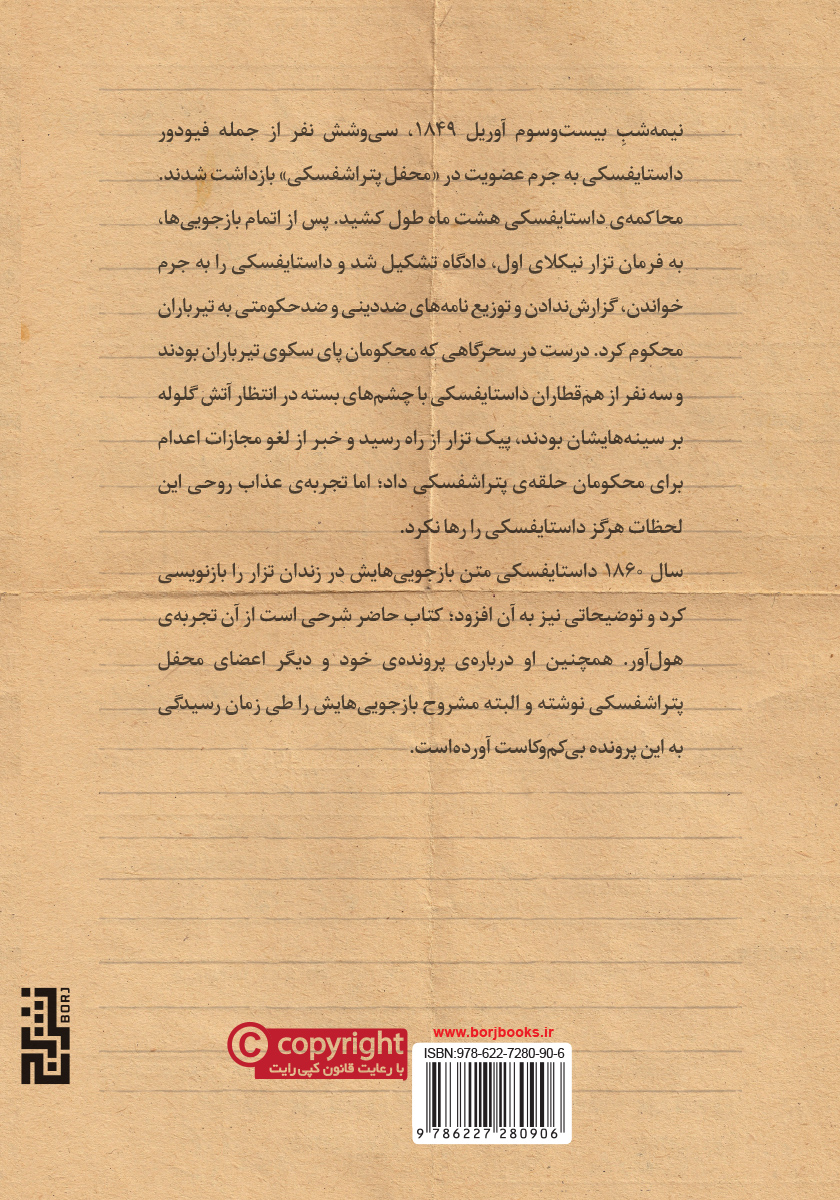 نیمه‌شبِ بیست‌وسوم آوریل ۱۸۴۹، سی‌وشش نفر از جمله فیودور
داستایفسکی به جرم عضویت در «محفل پتراشفسکی» بازداشت شدند.
محاکمه‌ی داستایفسکی هشت ماه طول کشید. پس از اتمام بازجویی‌ها،
به فرمان تزار نیکلای اول، دادگاه تشکیل شد و داستایفسکی را به جرم
خواندن، گزارش‌ندادن و توزیع نامه‌های ضددینی و ضدحکومتی به تیرباران
محکوم کرد. درست در سحرگاهی که محکومان پای سکوی تیرباران بودند
و سه نفر از هم‌قطاران داستایفسکی با چشم‌های بسته در انتظار آتش گلوله
بر سینه‌هایشان بودند، پیک تزار از راه رسید و خبر از لغو مجازات اعدام
برای محکومان حلقه‌ی پتراشفسکی داد؛ اما تجربه‌ی عذاب روحی این
لحظات هرگز داستایفسکی را رها نکرد.
سال ۱۸۶۰ داستایفسکی متن بازجویی‌هایش در زندان تزار را بازنویسی
کرد و توضیحاتی نیز به آن افزود؛ کتاب حاضر شرحی است از آن تجربه‌ی
هول‌آور. همچنین او درباره‌ی پرونده‌ی خود و دیگر اعضای محفل
پتراشفسکی نوشته و البته مشروح بازجویی‌هایش را طی زمان رسیدگی
به این پرونده بی‌کم‌وکاست آورده‌است.
برج
BORJ
© copyright
با رعایت قانون کپی‌رایت
www.borjbooks.ir
ISBN:978-622-7280-90-6
9 786227 280906